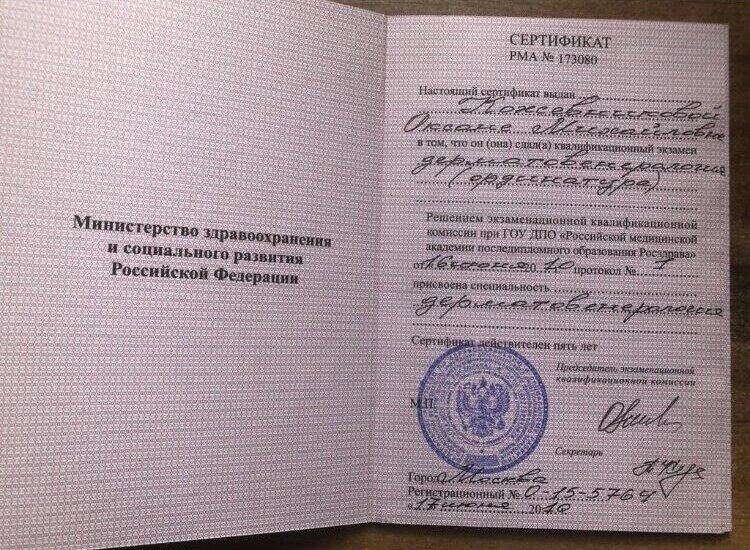 Министерство здравоохранения
и социального развития
Российской Федерации
СЕРТИФИКАТ
РМА № 173080
Настоящий сертификат выдан
Кожевниковой
Оксане Михайловне
в том, что он (она) сдал(а) квалификационный экзамен
дерматовенерология
(ординатура)
Решением экзаменационной квалификационной
комиссии при ГОУ ДПО «Российской медицинской
академии последипломного образования Росздрава»
от 16 июня 2010 протокол № 1
присвоена специальность
дерматовенерология
Сертификат действителен пять лет
Председатель экзаменационной
квалификационной комиссии
М.П.
Секретарь
Город Москва
Регистрационный № О-15-5764
«17 июня 2010